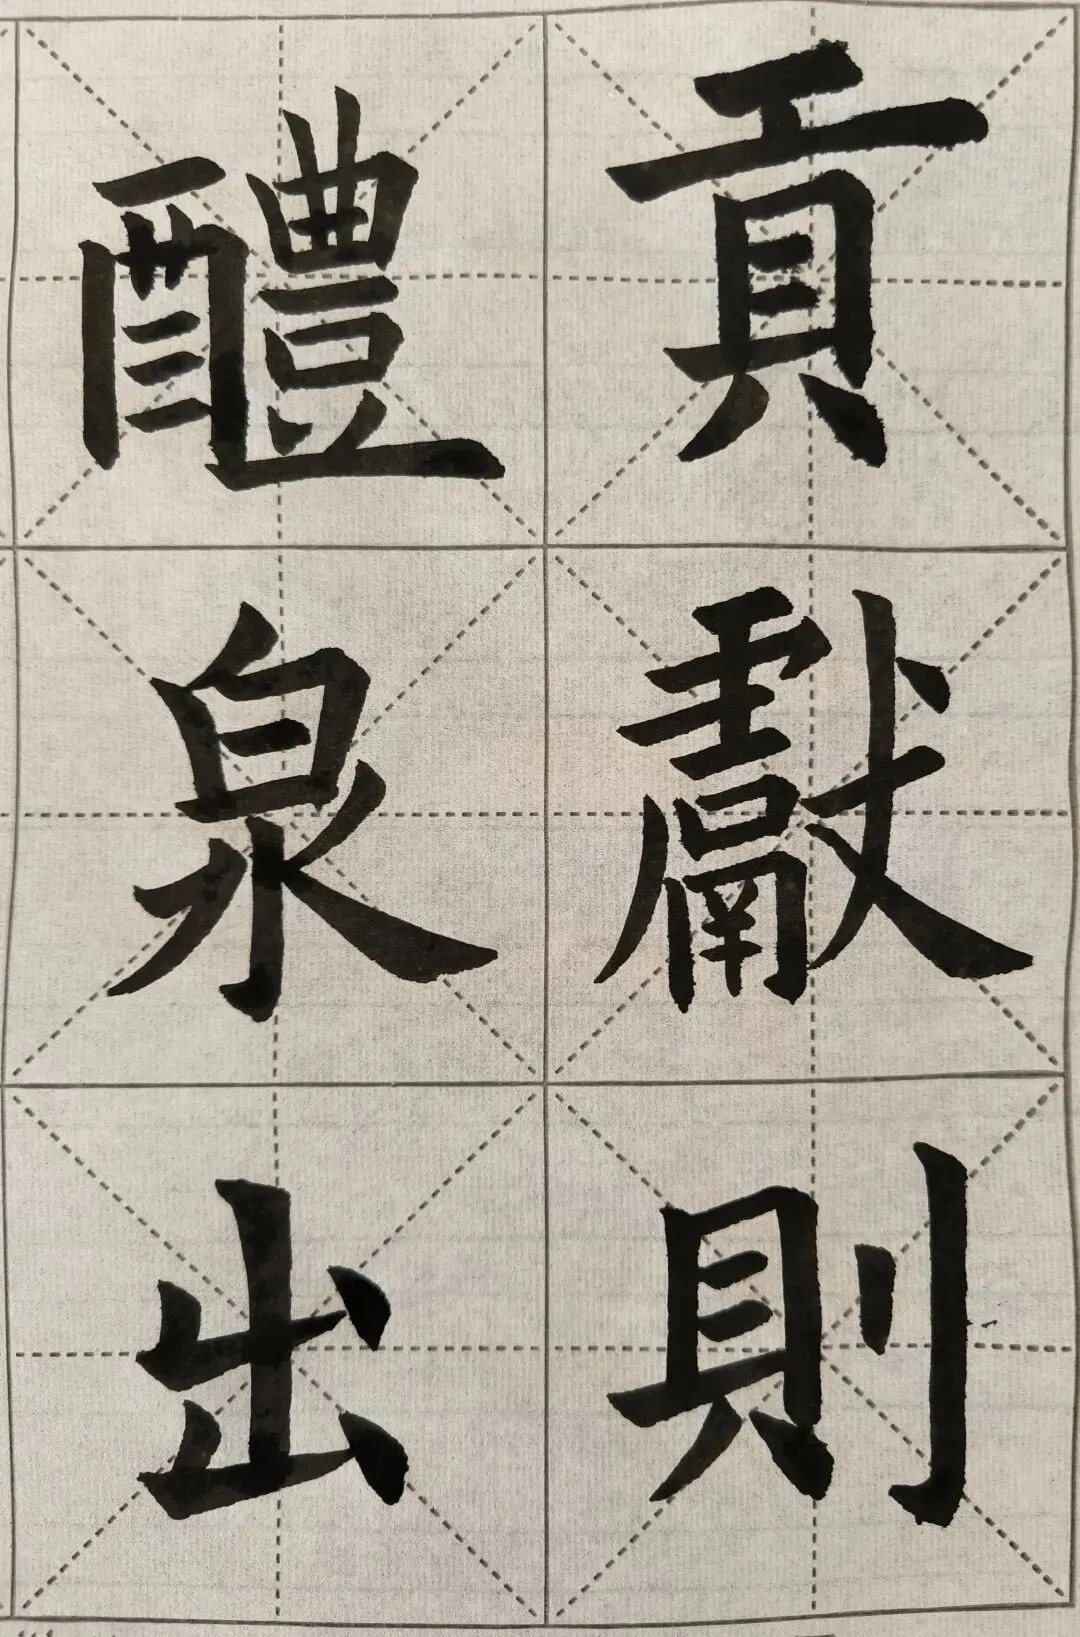 貢獻則
醴泉出